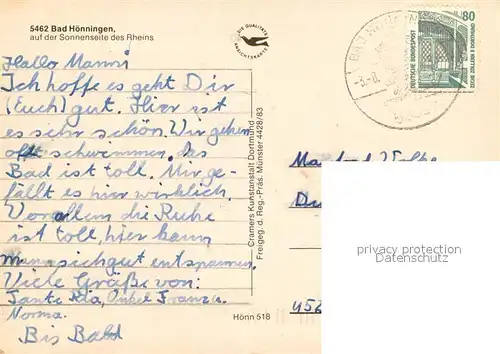 5462 Bad Hönningen,
auf der Sonnenseite des Rheins
DIE QUALITÄTS
ANSICHTSKARTE
80
DEUTSCHE BUNDESPOST
ZECHE ZOLLERN II DORTMUND
Hallo Manni
Ich hoffe es geht Dir
(Euch) gut. Hier ist
es sehr schön. Wir gehen
oft schwimmen. Das
Bad ist toll. Mir ge-
fällt es hier wirklich.
Vorallem die Ruhe
ist toll, hier kann
man sich gut entspannen.
Viele Grüße von:
Tante Ida, Onkel Franz u.
Norma.
Bis Bald
Cramers Kunstanstalt Dortmund
Freigeg. d. Reg.-Präs. Münster 4428/83
Hönn 518
privacy protection
watermark
452